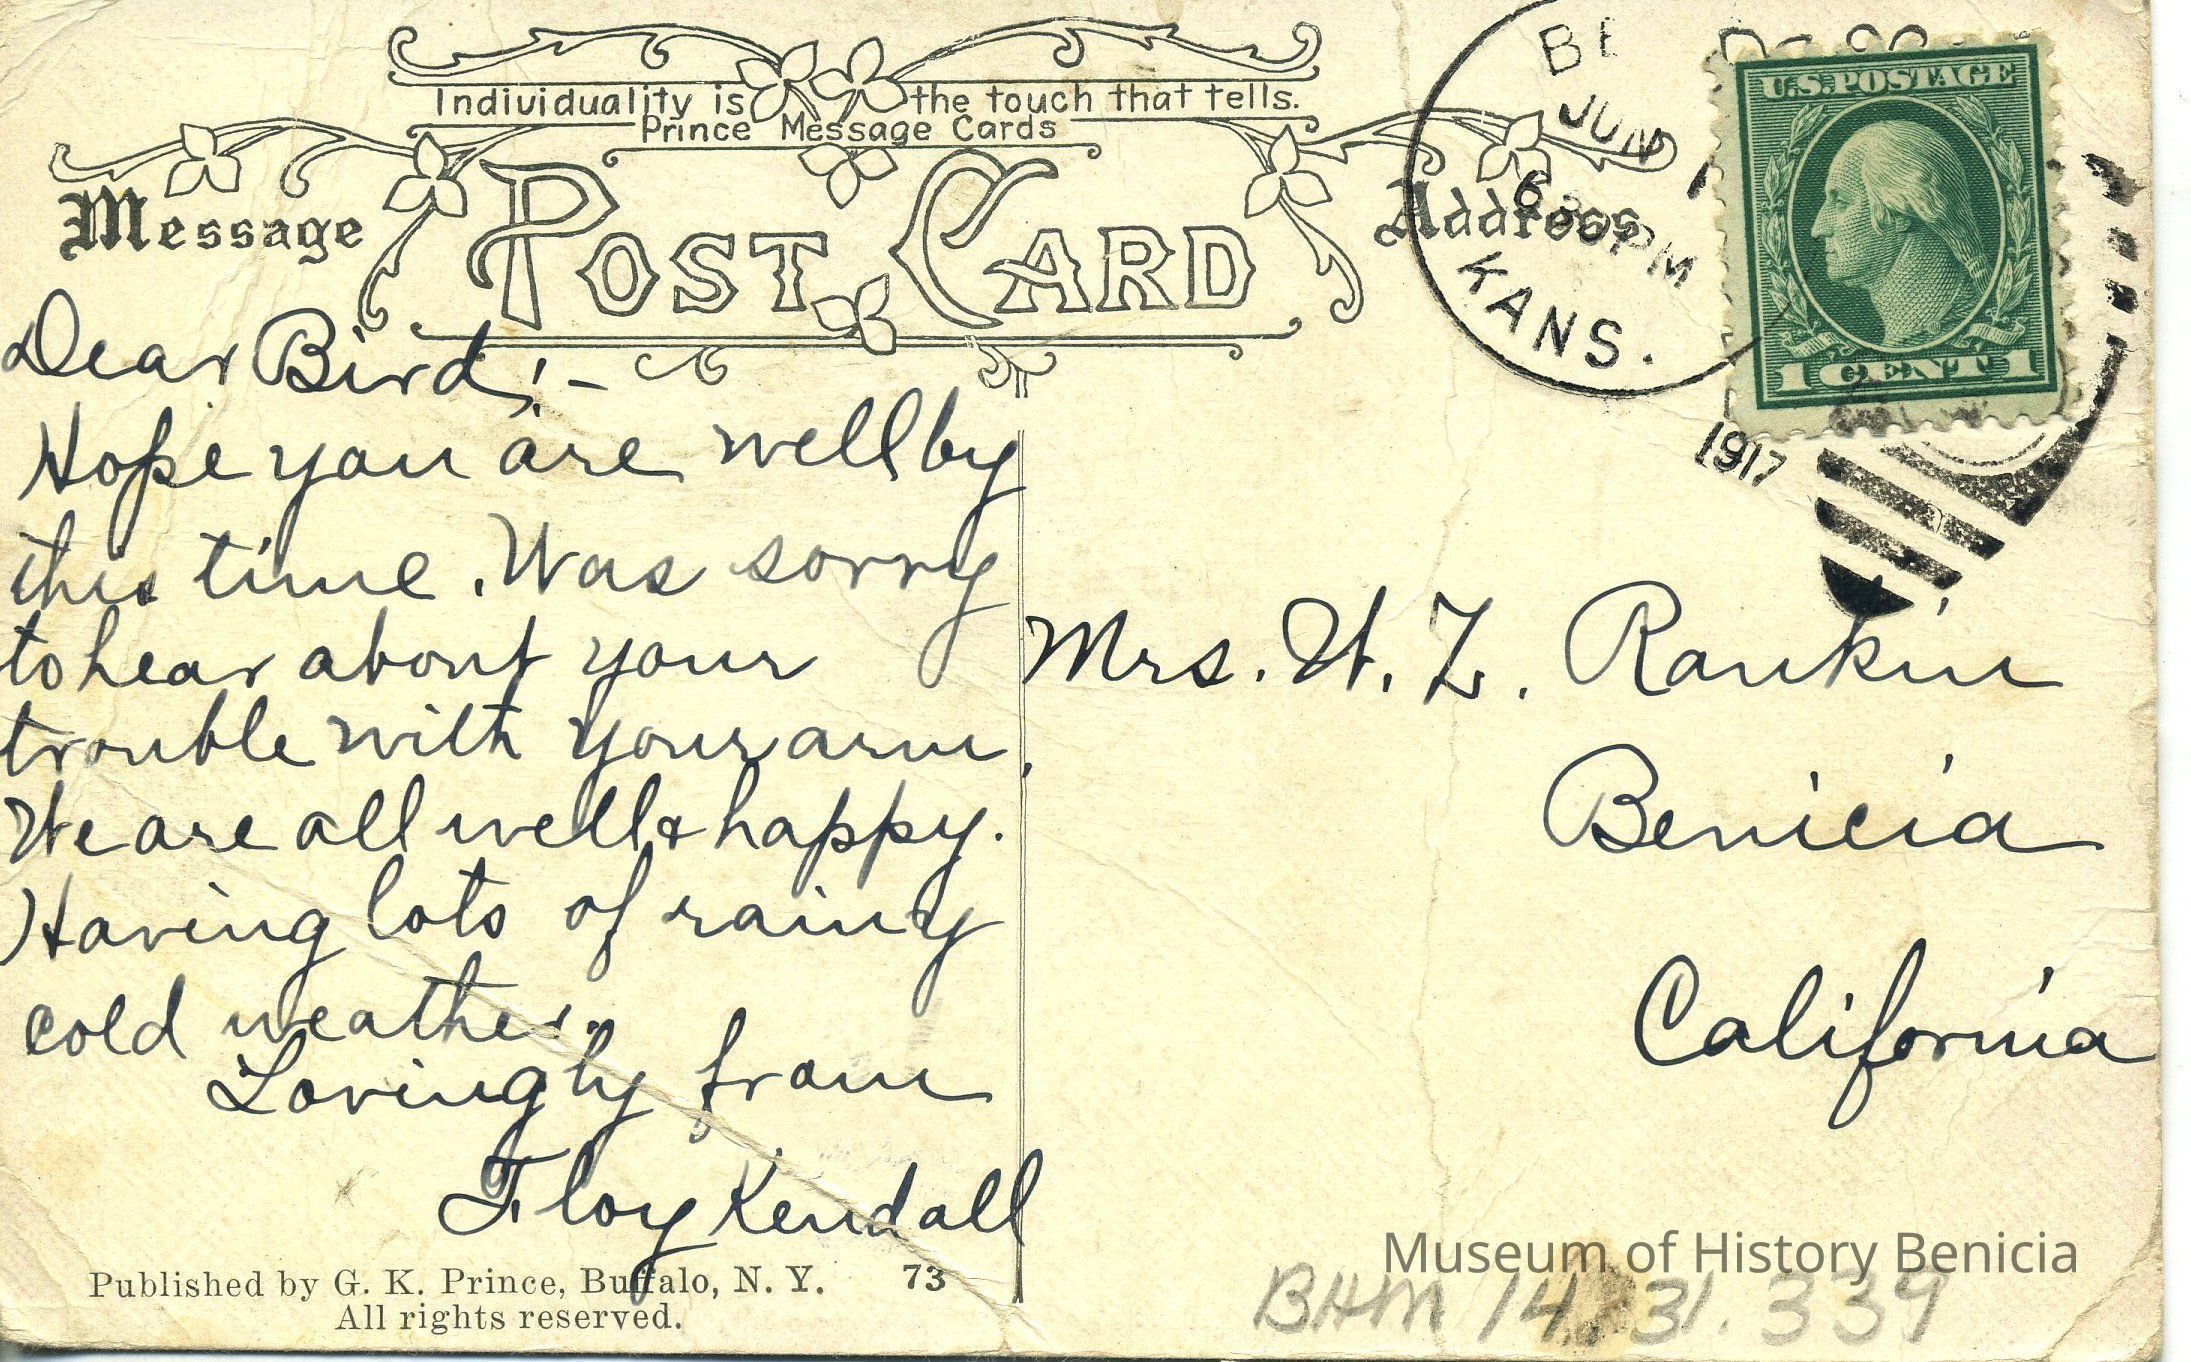 Individuality is the touch that tells.
Prince Message Cards
Message
POST CARD
Address
BE
JUN
6 30 PM
KANS.
1917
U.S. POSTAGE
1 CENT 1
Dear Bird;-
Hope you are well by
this time. Was sorry
to hear about your
trouble with your arm.
We are all well & happy.
Having lots of rainy
cold weather.
Lovingly from
Floy Kendall
Mrs. W. Z. Rankin
Benicia
California
Published by G. K. Prince, Buffalo, N. Y. 73
All rights reserved.
Museum of History Benicia
BHM 14.31.339